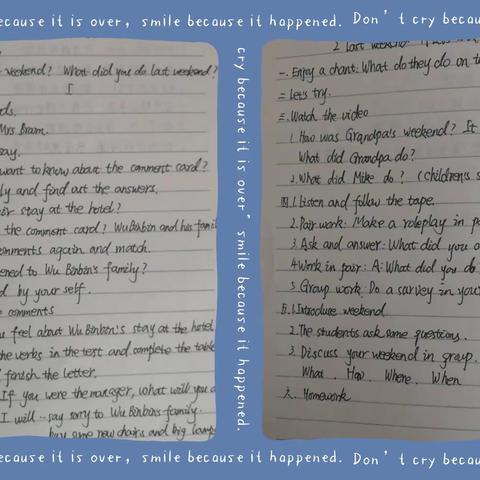 ecause it is over, smile because it happened. Don't cry becau
weekend? What did you do last weekend?
ds.
Mrs Bram.
say.
want to know about the comment card?
ly and find out the answers.
stay at the hotel?
the comment card? Wu Binbin and his famil
omments again and match.
ened to Wu Binbin's family?
d by your self.
e comments
u feel about Wu Binbin's stay at the hotel
the verbs in the text and complete the table
finish the letter.
If you were the manager, what will you
I will say sorry to Wu Binbin's family.
buy some new chairs and big lamps
cry because it is over, smile because it happened.
2 Last weekend
一. Enjoy a chant: What do they do on
二 Let's try.
三. Watch the video
1. How was Grandpa's weekend? It
What did Grandpa do?
2. What did Mike do? (Children's
四. 1. Listen and follow the tape.
2. Pair work: Make a roleplay in
3. Ask and answer: What did you
4. Work in pair: A: What did you do
5. Group work: Do a survey in you
五. 1. Introduce weekend
2. The students ask some questions.
3. Discuss your weekend in group.
What. How. Where. When
六. Homework
ecause it is over, smile because it happened. Don't cry becau